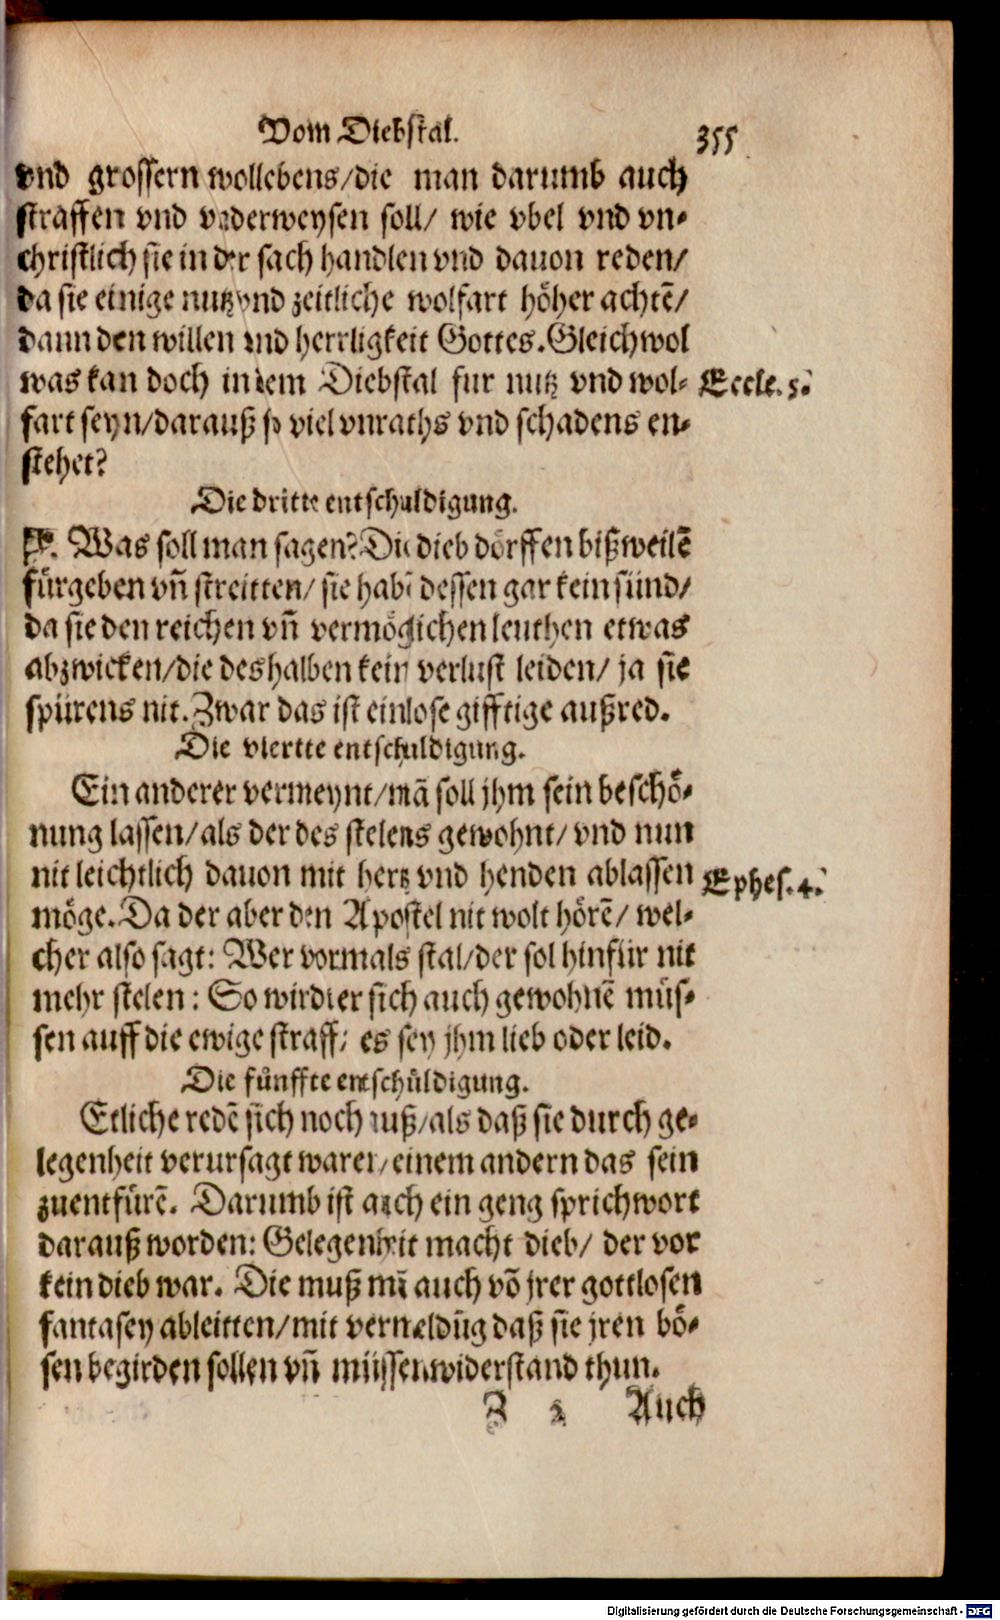 Vom Diebstal. 355
vnd grossern wollebens/die man darumb auch
straffen vnd vnderweysen soll/ wie vbel vnd vn-
christlich sie in der sach handlen vnd dauon reden/
da sie einige nutz vnd zeitliche wolfart höher achtē/
dann den willen vnd herrligkeit Gottes. Gleichwol
was kan doch in dem Diebstal fur nutz vnd wol-
Eccle. 5.
fart seyn/darauß so viel vnraths vnd schadens en-
stehet?
Die dritte entschuldigung.
Was soll man sagen? Die dieb dörffen bißweilē
fürgeben vn̄ streitten/ sie habē dessen gar kein sünd/
da sie den reichen vn̄ vermöglichen leuthen etwas
abzwicken/die deshalben kein verlust leiden/ ja sie
spürens nit. Zwar das ist ein lose gifftige außred.
Die viertte entschuldigung.
Ein anderer vermeynt/mā soll jhm sein beschö-
nung lassen/als der des stelens gewohnt/ vnd nun
nit leichtlich dauon mit hertz vnd henden ablassen
Ephes. 4.
möge. Da der aber den Apostel nit wolt hörē/ wel-
cher also sagt: Wer vormals stal/der sol hinfür nit
mehr stelen: So wirdt er sich auch gewohnē müs-
sen auff die ewige straff/ es sey jhm lieb oder leid.
Die fünffte entschüldigung.
Etliche redē sich noch auß/als daß sie durch ge-
legenheit verursagt waren/einem andern das sein
zuentfürē. Darumb ist auch ein geng sprichwort
darauß worden: Gelegenheit macht dieb/ der vor
kein dieb war. Die muß mā auch vō jrer gottlosen
fantasey ableitten/mit vermeldūg daß sie jren bö-
sen begirden sollen vn̄ müssen widerstand thun.
Auch
Digitalisierung gefördert durch die Deutsche Forschungsgemeinschaft - DFG